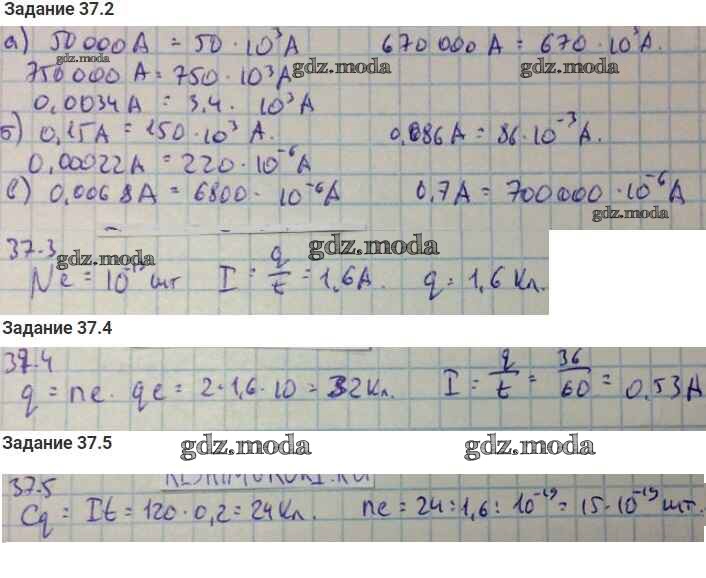 Задание 37.2
а) 50 000 А = 50 · 10³ А 670 000 А = 670 · 10³ А.
gdz.moda
750000 А = 750 · 10³ А gdz.moda
0,0034 А = 3,4 · 10³ А
б) 0,15А = 150 · 10³ А. 0,086 А = 86 · 10⁻³ А.
0,00022А = 220 · 10⁻⁶ А
в) 0,0068 А = 6800 · 10⁻⁶ А 0,7 А = 700000 · 10⁻⁶ А
gdz.moda
37.3 gdz.moda gdz.moda
Ne = 10⁻¹⁹ шт I = q/t = 1,6 А. q = 1,6 Кл.
Задание 37.4
37.4
q = ne · qe = 2 · 1,6 · 10 = 32 Кл. I = q/t = 36/60 = 0,53 А
Задание 37.5 gdz.moda gdz.moda
37.5
Cq = It = 120 · 0,2 = 24 Кл. ne = 24 : 1,6 : 10⁻¹⁹ = 15 · 10⁻¹⁹ шт.